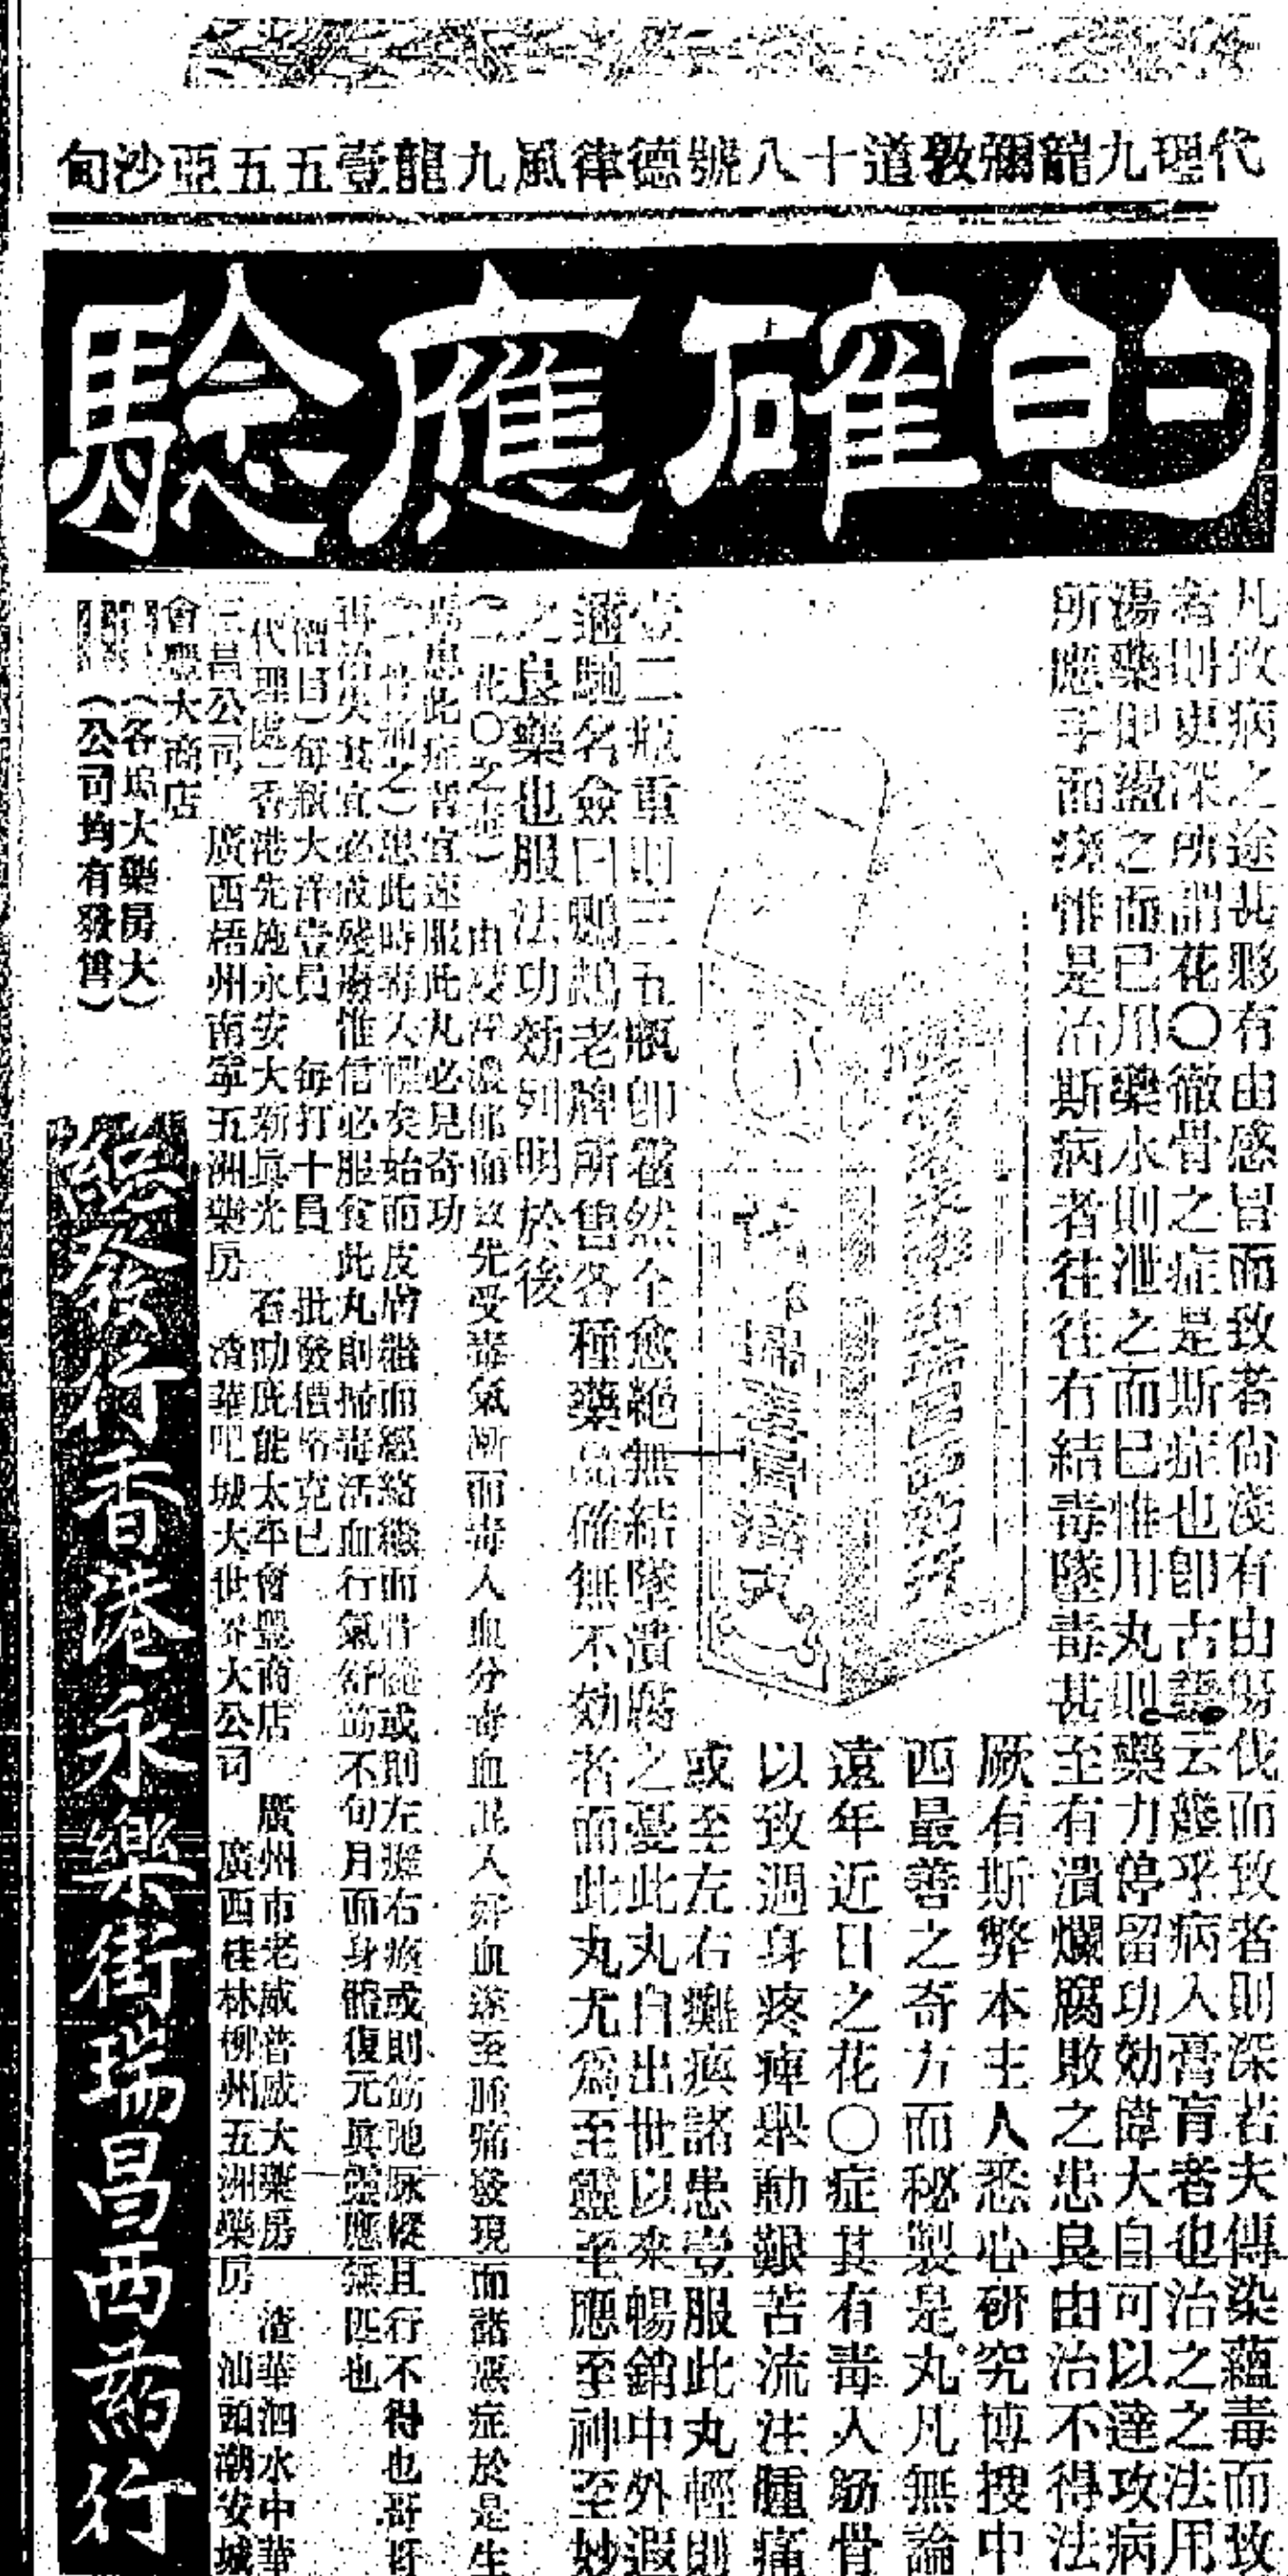 代理九龍彌敦道十八號德律風九龍壹五五亞沙甸
的確應驗
凡致病之途甚夥有由感冒而致者尚淺有由斲伐而致者則深若夫傳染蘊毒而致
者則更深所謂花〇徹骨之症是斯症也卽古語云殆乎病入膏肓者也治之之法用
湯藥即盪之而已用藥水則泄之而已惟用丸則藥力停留功効偉大自可以達攻病
所應手而瘓惟是治斯病者往往有結毒墜毒甚至有潰爛腐敗之患良由治不得法
厥有斯弊本主人悉心研究博搜中
西最善之奇方而秘製是丸凡無論
遠年近日之花〇症其有毒入筋骨
以致週身疼痺舉動艱苦流注腫痛
或至左右癱瘓諸患壹服此丸輕則
壹二瓶重則三五瓶卽霍然全愈絶無結墜潰腐之憂此丸自出世以來暢銷中外遐
邇馳名僉曰鷓鴣老牌所售各種藥品確無不効者而此丸尤爲至靈至應至神至妙
之良藥也服法功効列明於後
由受淫濕郁而致先受毒氣漸而毒入血分毒血混入好血遂至腫痛發現而諸惡症於是生
患此症者宜速服此丸必見奇功
患此時毒入裡矣始而皮膚繼而經絡繼而骨髓或則左癱右瘓或則筋弛脉縱且行不得也哥哥
再治失其宜必成殘廢惟信必服食此丸則掃毒活血行氣舒筋不旬月而身體復元眞靈應無匹也
價目)每瓶大洋壹員 每打十員 批發價格克己
代理處 香港先施永安大新眞光 石叻庇能太年會豐商店 廣州市老威普威大藥房 渣華泗水中華
三昌公司 廣西梧州南寧五洲藥房 渣華吧城大世界大公司 廣西桂林柳州五洲藥房 汕頭潮安城
會豐大商店
(各埠大藥房大)
(公司均有發售)
總發行香港永樂街瑞昌西葯行